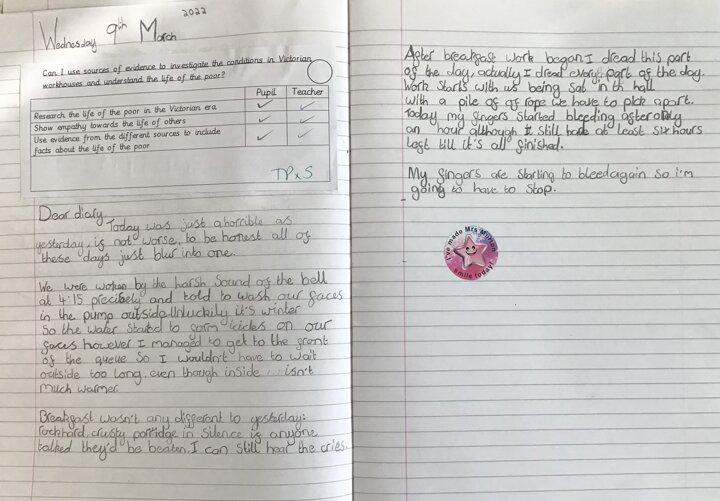 Wednesday 9th March 2022
Can I use sources of evidence to investigate the conditions in Victorian
workhouses and understand the life of the poor?
Pupil Teacher
Research the life of the poor in the Victorian era
Show empathy towards the life of others
Use evidence from the different sources to include
facts about the life of the poor
TP x S
Dear diary,
Today was just ahorrible as
yesterday, if not worse, to be honest all of
these days just blur into one.
We were woken by the harsh Sound of the bell
at 4:15 precisely and told to wash our faces
in the pump outside. Unluckily it's winter
So the water started to form icicles on our
faces however I managed to get to the front
of the queue So I wouldn't have to wait
outside too long. even though inside isn't
much warmer.
Breakfast wasn't any different to yesterday:
rockhard, crusty porridge in Silence if anyone
talked they'd be beaten. I can still hear the cries.
After breakfast work began. I dread this part
of the day, actually I dread every part of the day.
Work starts with us being sat in th hall
with a pile of of rope we have to pick apart.
Today my fingers started bleeding after only
an hour although I still have at least six hours
left till it's all finished.
My fingers are starting to bleed again so i'm
going to have to stop.
I've made Mrs
smile today!